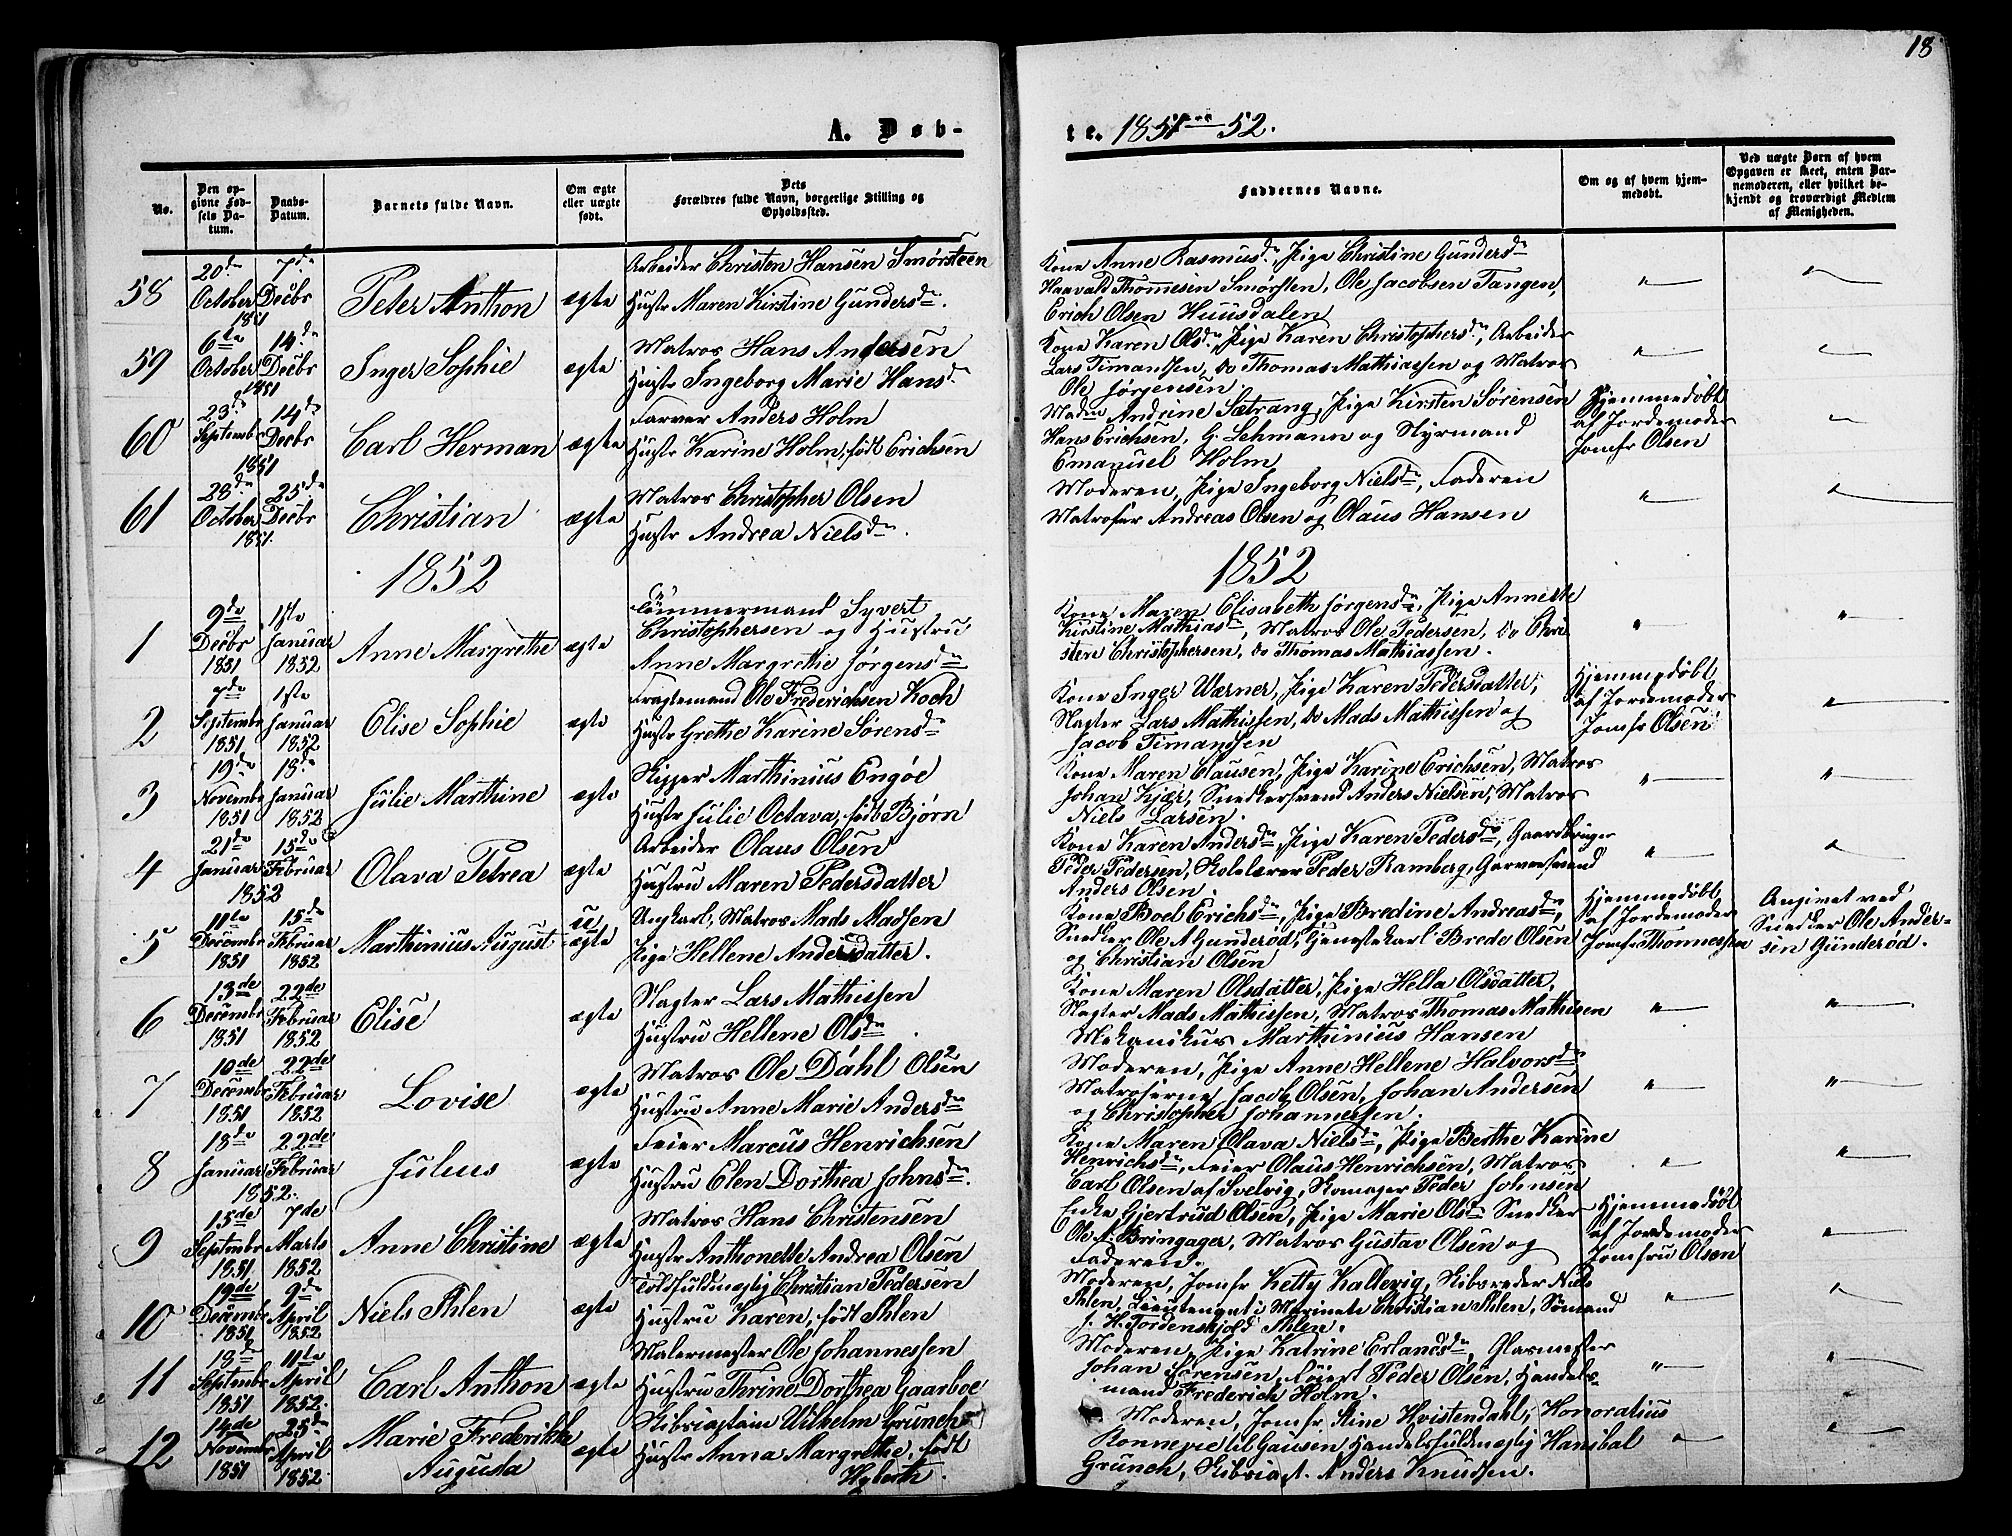 18
A. Døb-
te. 1851 - 52.
No.
Den op-
givne Fød-
sels Da-
tum.
Daabs-
Datum.
Barnets fulde Navn.
Om ægte
eller uægte
født.
Dets
Forældres fulde Navn, borgerlige Stilling og
Opholdssted.
Faddernes Navne.
Om og af hvem hjem-
medøbt.
Ved uægte Børn af hvem
Opgaven er skeet, enten Bar-
nemoderen, eller hvilket be-
kjendt og troværdigt Medlem
af Menigheden.
58
20de
October
1851
7de
Decbr
Peter Anthon
ægte
Arbeider Christen Hansen Smørsteen
Hustr Maren Kirstine Gundersdr
Kone Anne Rasmusdr, Pige Christine Gundersdr
Haavald Thommesen Smørsten, Ole Jacobsen Tangen,
Erich Olsen Huusdalen
"
"
59
6te
October
1851
14de
Decbr
Inger Sophie
ægte
Matros Hans Andersen
Hustr Ingeborg Marie Hansdr
Kone Karen Olsdr, Pige Karen Christophersdr, Arbeider
Lars Timansen, do Thomas Mathiassen og Matros
Ole Jørgensen.
"
"
60
23de
Septembr
1851
14de
Decbr
Carl Herman
ægte
Farver Anders Holm
Hustr Karine Holm, født Erichsen
Madm Andrine Sætrang, Pige Kirsten Sørensen
Hans Erichsen, G. Lehmann og Styrmand
Emanuel Holm
Hjemmedøbt
af Jordemoder
Jomfr Olsen
"
61
28de
October
1851.
25de
Decbr
Christian
ægte
Matros Christopher Olsen
Hustr Andrea Nielsdr.
Moderen, Pige Ingeborg Nielsdr, Faderen
Matroser Andreas Olsen og Olaus Hansen
"
"
1852
1852
1
9de
Decbr
1851
1ste
Januar
1852
Anne Margrethe
ægte
Tömmermand Syvert
Christophersen og Hustru
Anne Margrethe Jørgensdr
Kone Maren Elisabeth Jørgensdr, Pige Annette
Kirstine Mathiasdr, Matros Ole Pedersen, do Chri-
sten Christophersen, do Thomas Mathiassen.
"
"
2
7de
Septembr
1851
1ste
Januar
1852
Elise Sophie
ægte
Fragtemand Ole Frederichsen Koch
Hustr Grethe Karine Sørensdr
Kone Inger Wærner, Pige Karen Pedersdatter,
Slagter Lars Mathissen, do Mads Mathissen og
Jacob Timandsen
Hjemmedøbt
af Jordemoder
Jomfr Olsen
"
3
19de
Novembr
1851
18de
Januar
1852
Julie Marthine
ægte
Skipper Marthinius Engøe
Hustr Julie Octava, født Bjørn
Kone Maren Clausen, Pige Karine Erichsen, Matros
Johan Kjær, Snedkersvend Anders Nielsen, Matros
Niels Larsen.
"
"
4
21de
Januar
1852
15de
Februar
Olava Petrea
ægte
Arbeider Olaus Olsen
Hustru Maren Pedersdatter
Kone Karen Andersdr, Pige Karen Pedersdr, Gaardbruger
Peder Pedersen, Skolelærer Peder Ramberg, Garversvend
Anders Olsen.
"
"
5
11te
Decembr
1851
15de
Februar
1852
Marthinius August
u
ægte
Ungkarl, Matros Mads Madsen
Pige Hellene Andersdatter.
Kone Boel Erichsdr, Pige Bredine Andreasdr,
Snedker Ole A Gunderød, Tjenestekarl Brede Olsen
og Christian Olsen
Hjemmedøbt
af Jordemoder
Jomfr Thommessen
Angivet ved
Snedker Ole Ander-
sen Gunderød.
6
13de
Decembr
1851
22de
Februar
1852
Elise
ægte
Slagter Lars Mathissen
Hustru Hellene Olsdr
Kone Maren Olsdatter, Pige Hella Olsdatter,
Slagter Mads Mathissen, Matros Thomas Mathisen
Mekanikus Marthinius Hansen
"
"
7
10de
Decembr
1851
22de
Februar
1852
Lovise
ægte
Matros Ole Dahl Olsen
Hustru Anne Marie Andersdr
Moderen, Pige Anne Hellene Halvorsdr
Matroserne Jacob Olsen, Johan Andersen
og Christopher Johannessen.
"
"
8
18de
Januar
1852.
22de
Februar
Julius
ægte
Feier Marcus Henrichsen
Hustru Elen Dorthea Johnsdr.
Kone Maren Olava Nielsdr, Pige Berthe Karine
Henrichsdr, Feier Olaus Henrichsen, Matros
Carl Olsen af Svelvig, Skomager Peder Johnsen
"
"
9
15de
Septembr
1851
7de
Marts
1852
Anne Christine
ægte
Matros Hans Christensen
Hustr Anthonette Andrea Olsen
Enke Gjertrud Olsen, Pige Marie Olsdr Snedker
Ole A. Bringager, Matros Gustav Olsen og
Faderen.
Hjemmedøbt
af Jordemoder
Jomfru Olsen
"
10
19de
Decembr
1851
9de
April
1852
Niels Ihlen
ægte
Toldfuldmegtig Christian Pedersen
Hustru Karen, født Ihlen
Moderen, Jomfr Ketty Kallevig, Skibsreder Niels
Ihlen, Lieutenant i Marinete Christian Ihlen, Sömand
J. H. Tordenskjold Ihlen.
"
"
11
18de
Septembr
1851
11te
April
1852.
Carl Anthon
ægte
Malermester Ole Johannessen
Hustru Thrine Dorthea Gaarboe
Moderen, Pige Katrine Erlandsdr, Glasmester
Johan Sørensen, Peder Olsen, Handels-
mand Frederich Holm.
"
"
12
14de
Novembr
1851
25de
April
1852.
Marie Frederikke
Augusta
ægte
Skibscaptain Wilhelm Grunch
Hustr Anna Margrethe, født
Hyberth.
Moderen, Jomfr Stine Hvistendahl, Honoratius
Bonnevie til Gausen, Handelsfuldmegtig Hanibal
Grunch, Skibscapt. Anders Knudsen.
"
"